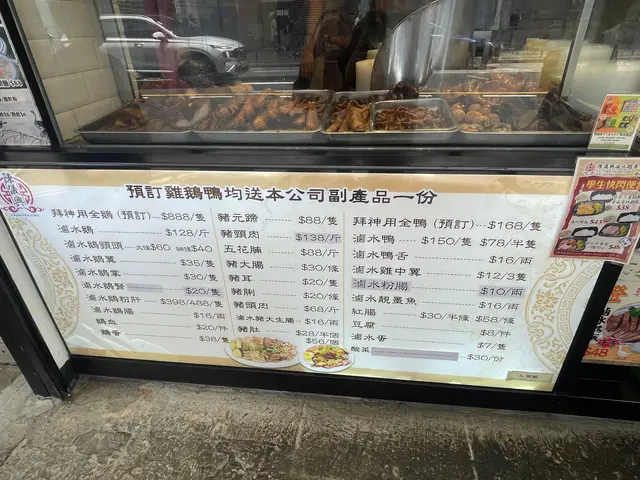 預訂雞鵝鴨均送本公司副產品一份
拜神用全鵝 (預訂) $888/隻
滷水鵝 $128/斤
滷水鵝頸頭 大條$60 細條$40
滷水鵝翼 $35/隻
滷水鵝掌 $30/隻
滷水鵝腎 $20/隻
滷水鵝粉肝 $398/488/隻
滷水鵝腸 $16/兩
鵝血 $20/件
鵝蛋 $38/隻
豬元蹄 $88/隻
豬頸肉 $138/斤
五花腩 $88/斤
豬大腸 $30/條
豬耳 $20/隻
豬脷 $20/條
豬頭肉 $68/斤
滷水豬大生腸 $16/兩
豬肚 $28/半個
$56/個
拜神用全鴨 (預訂) $168/隻
滷水鴨 $150/隻 $78/半隻
滷水鴨舌 $16/兩
滷水雞中翼 $12/3隻
滷水粉腸 $10/兩
滷水靚墨魚 $16/兩
紅腸 $30/半條 $58/條
豆腐 $8/件
滷水蛋 $7/隻
酸菜 $30/份
學生快閃便
$38
$43
$48